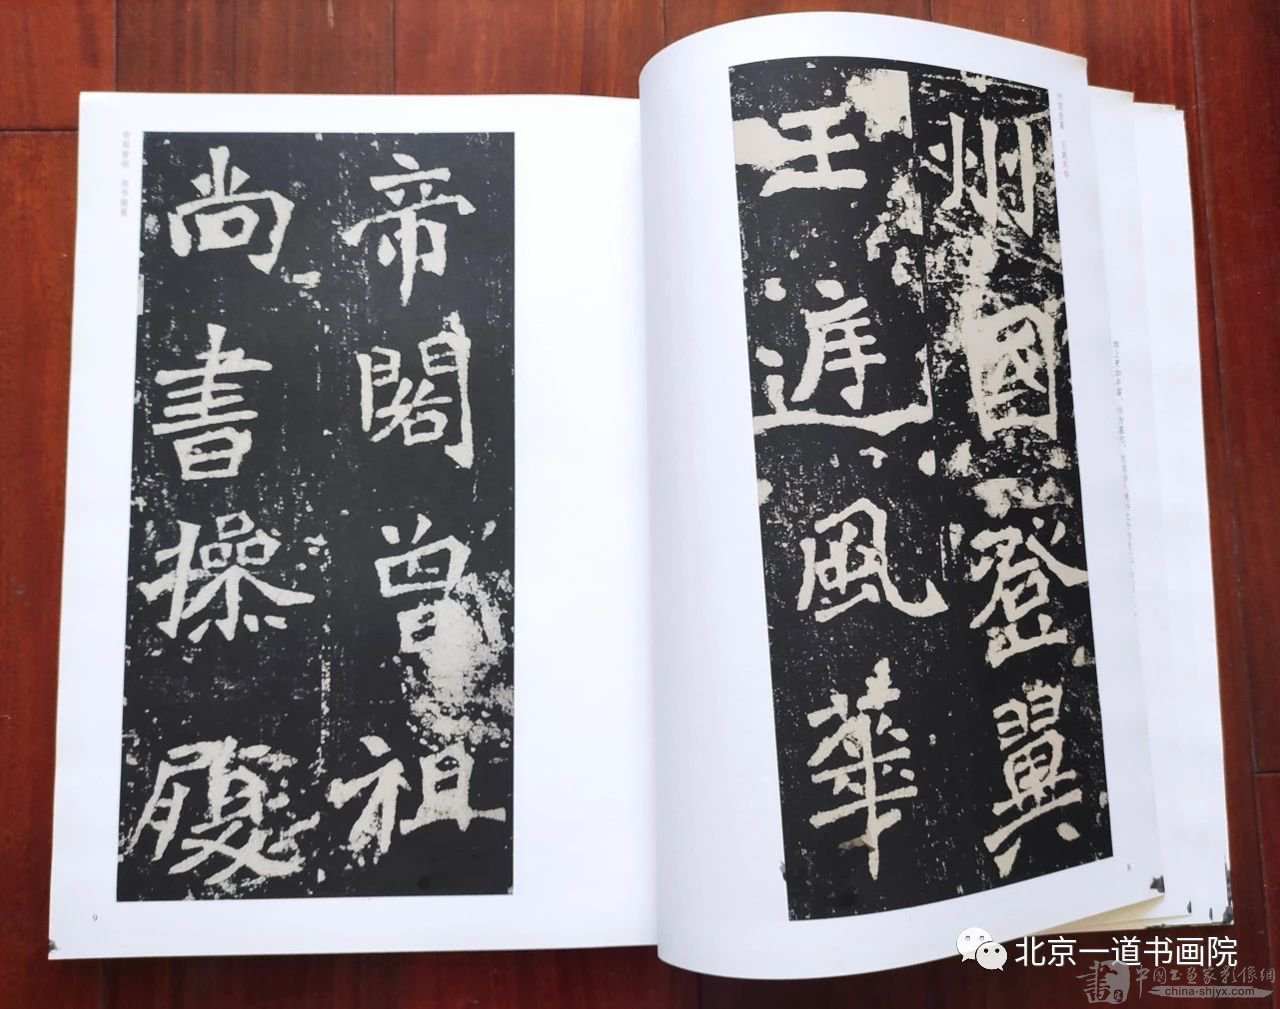 州國登翼
王庭風華
8
帝閣曾祖
尚書操履
9
北京一道书画院
china-shjyx.com